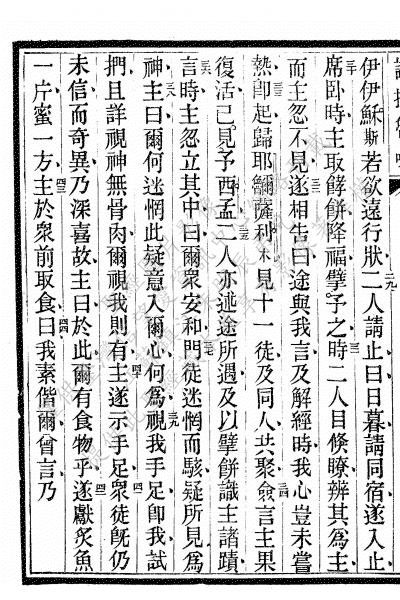 伊伊穌斯若欲遠行狀二人請止曰日暮請同宿遂入止
席卧時主取餑餅降福擘予之時二人目倏瞭辨其為主
而主忽不見遂相告曰途與我言及解經時我心豈未嘗
熱卽起歸耶爾薩利木見十一徒及同人共聚僉言主果
復活已見予西孟二人亦述途所遇及以擘餅識主諸蹟
言時主忽立其中曰爾衆安和門徒迷惘而駭疑所見為
神主曰爾何迷惘此疑意入爾心何為視我手足卽我試
捫且詳視神無骨肉爾視我則有主遂示手足衆徒旣仍
未信而奇異乃深喜故主曰於此爾有食物乎遂獻炙魚
一斤蜜一方主於衆前取食曰我素偕爾曾言乃